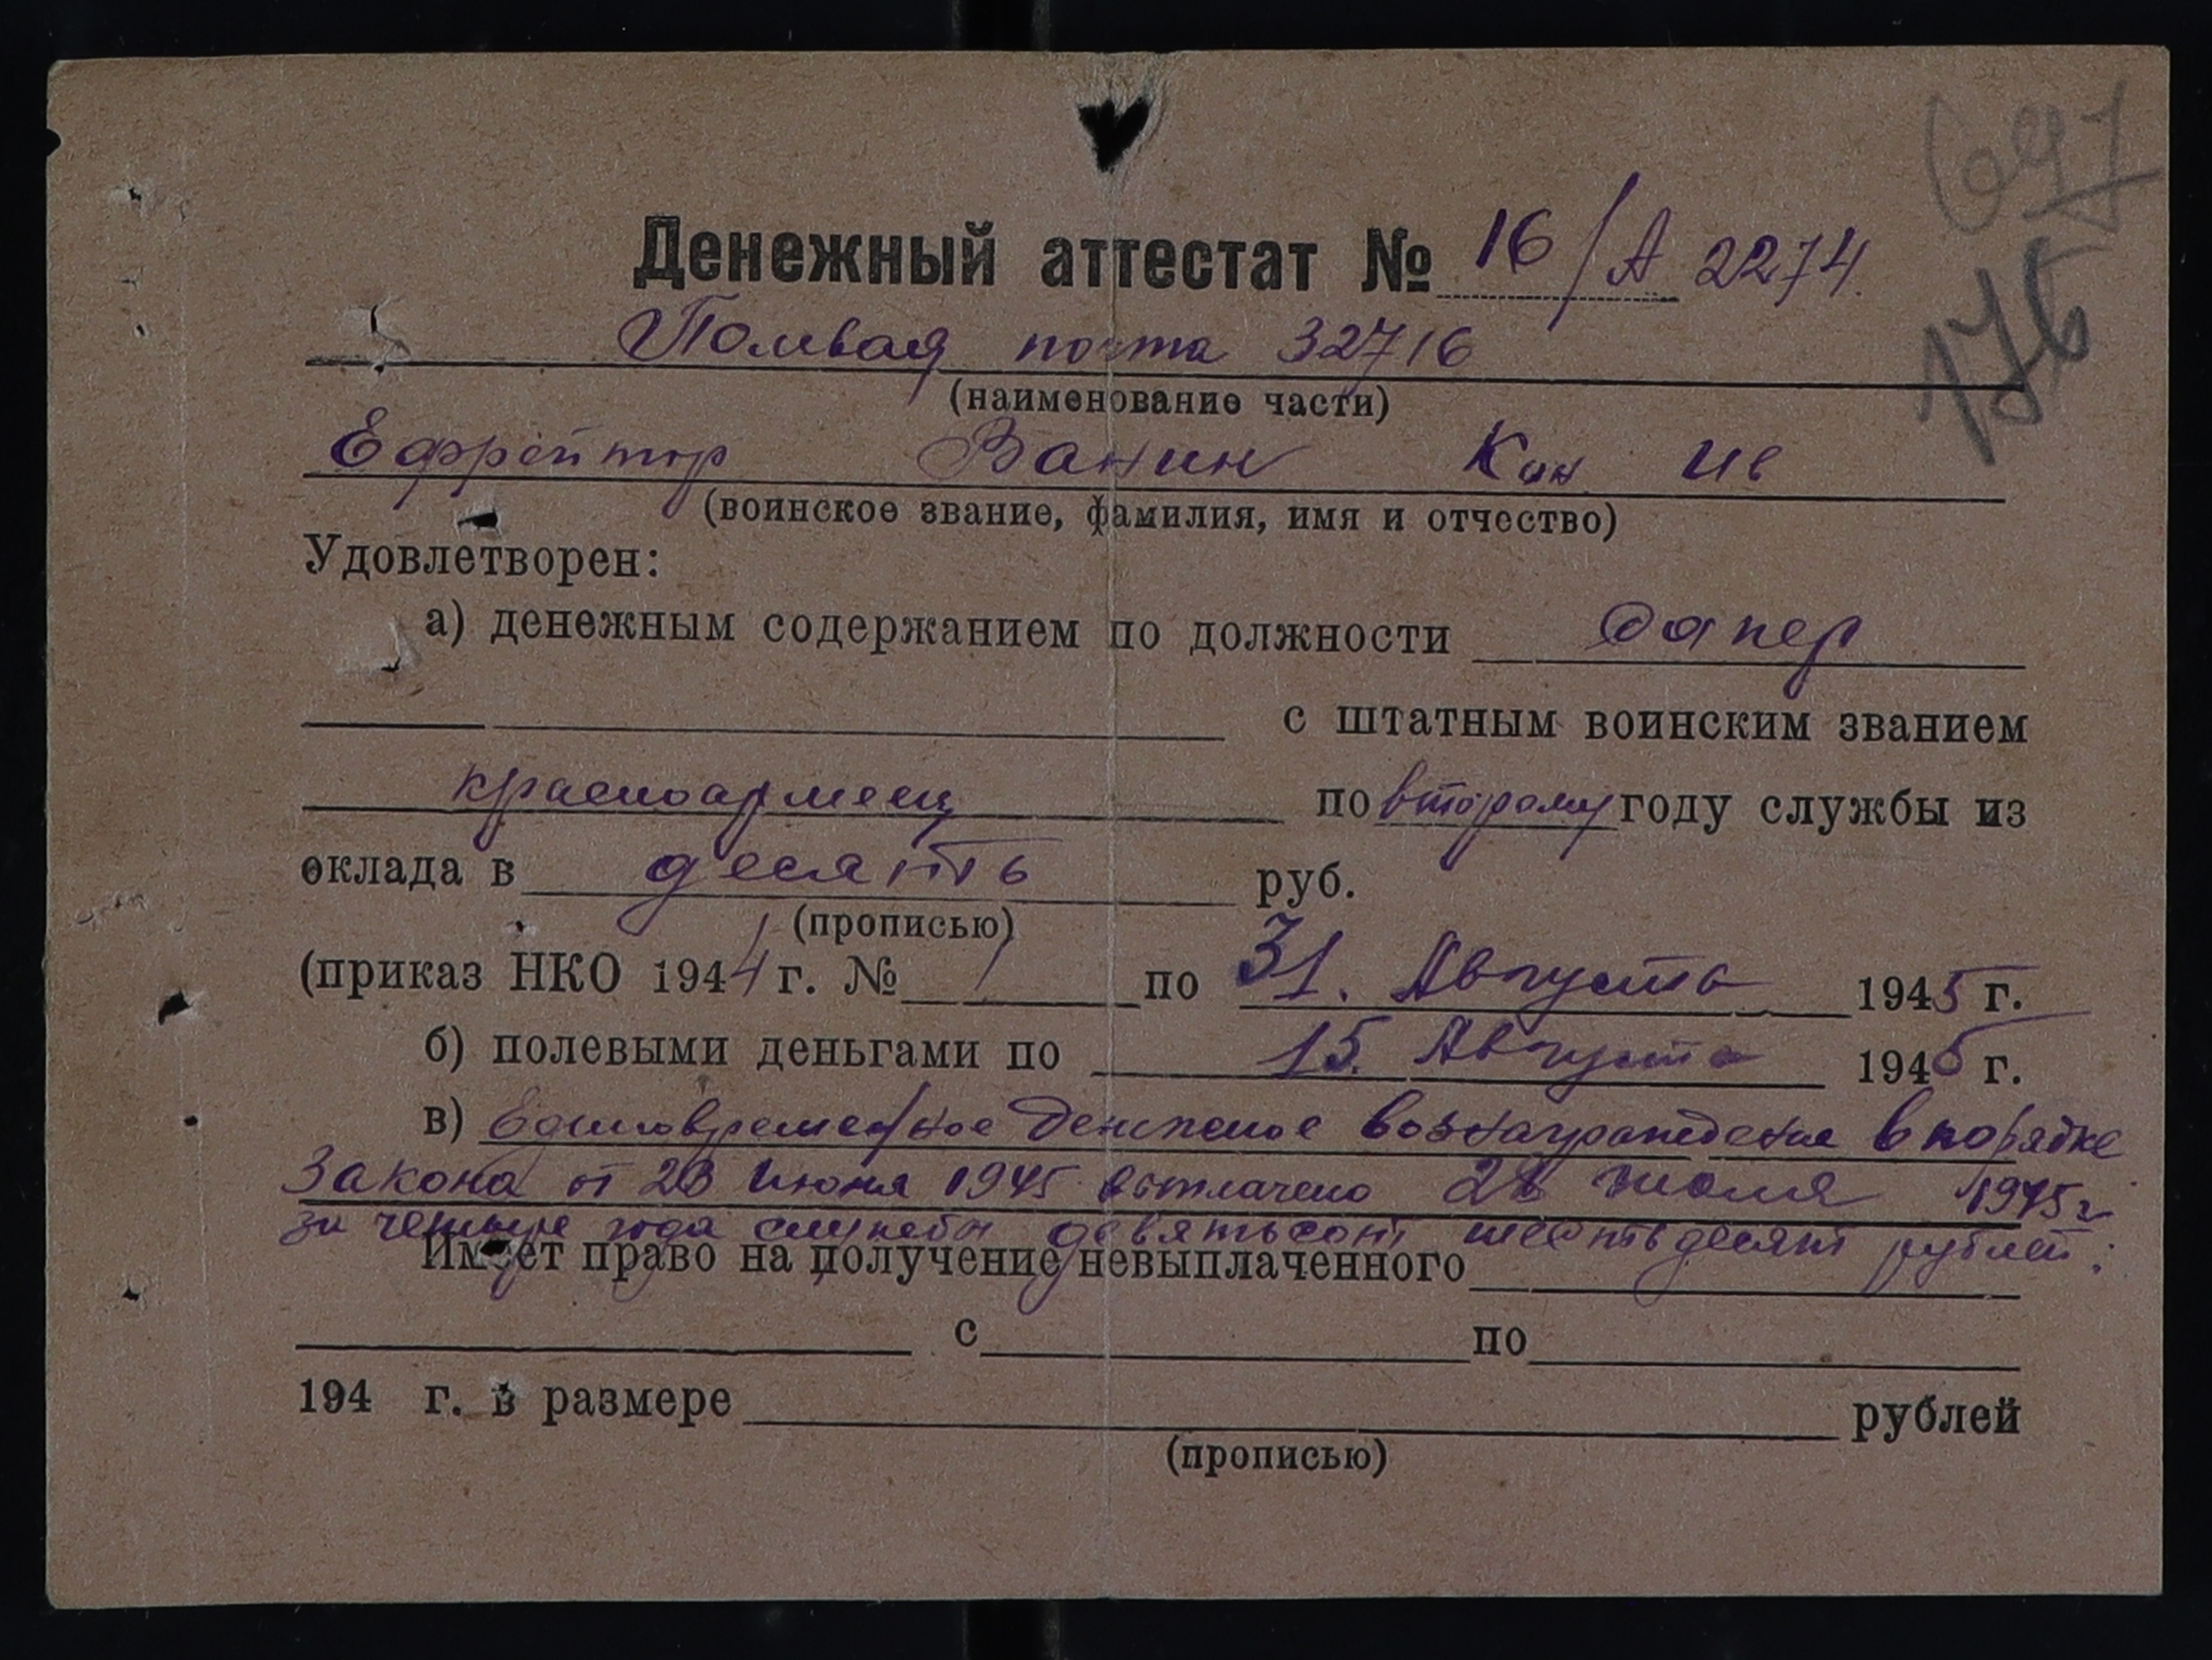 697
176
Денежный аттестат № 16/А 2274
Полвая почта 32716
(наименование части)
Ефрейтор Ванин Кон Ив
(воинское звание, фамилия, имя и отчество)
Удовлетворен:
а) денежным содержанием по должности сапер
с штатным воинским званием
красноармеец по второму году службы из
оклада в десять руб.
(прописью)
(приказ НКО 1944 г. № 1 по 31. Августа 1945 г.
б) полевыми деньгами по 15. Августа 1945 г.
в) Единовременное денежное вознаграждение в порядке
Закона от 23 Июня 1945 выплачено 28 июля 1945 г
за четыре года службы девятьсот шестьдесят рублей.
Имеет право на получение невыплаченного
с по
194 г. в размере рублей
(прописью)